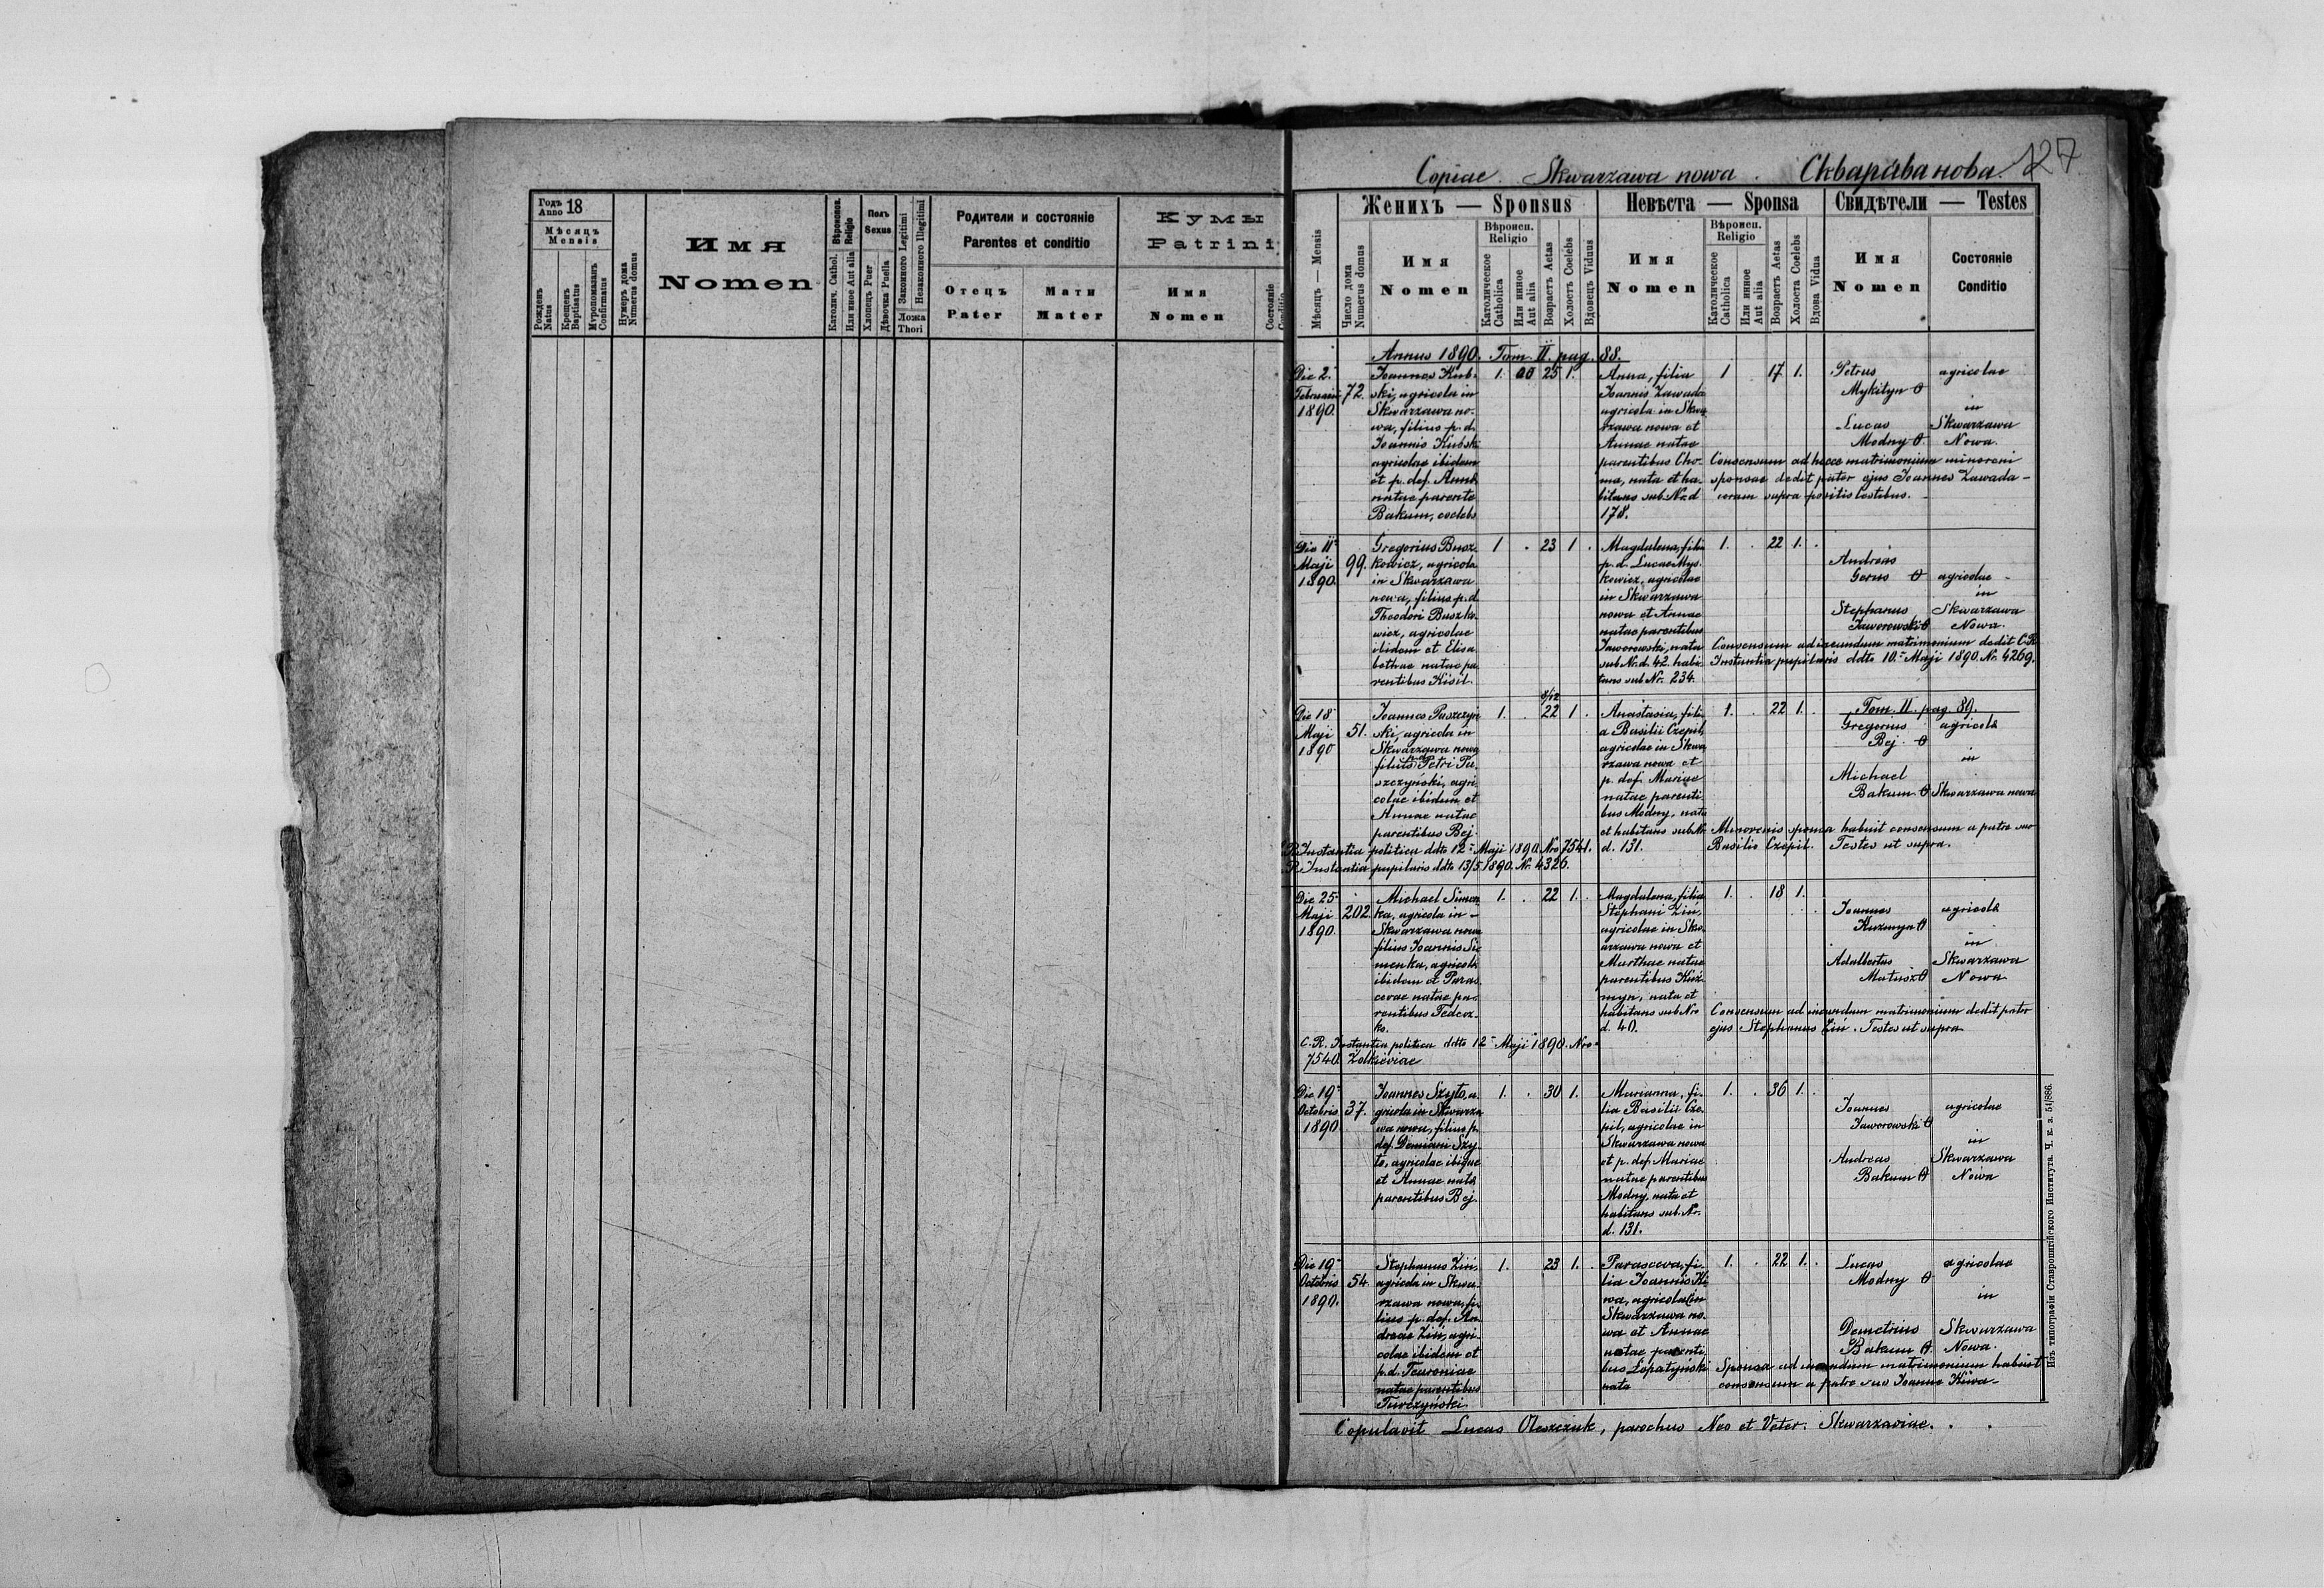 Годъ Anno 18
Мѣсяцъ
Mensis
Рожденъ Natus
Крещенъ Baptisatus
Мѵропомазанъ Confirmatus
Нумеръ дома
Numerus domus
Имя
Nomen
Вѣроисповѣд.
Religio
Католич. Cathol.
Или иное Aut alia
Полъ
Sexus
Хлопецъ Puer
Дѣвочка Puella
Законного Legitimi
Незаконного Illegitimi
Ложа
Thori
Родители и состояніе
Parentes et conditio
Отецъ
Pater
Мати
Mater
Кумы
Patrini
Имя
Nomen
Состояніе
Conditio
Copiae. Skwarzawa nowa. Скварѧва нова. 127
Женихъ — Sponsus
Невѣста — Sponsa
Свидѣтели — Testes
Мѣсяцъ — Mensis
Число дома
Numerus domus
Имя
Nomen
Вѣроисп.
Religio
Католическое
Catholica
Или инное
Aut alia
Возрастъ Aetas
Холостъ Coelebs
Вдовецъ Viduus
Имя
Nomen
Вѣроисп.
Religio
Католическое
Catholica
Или инное
Aut alia
Возрастъ Aetas
Холоста Coelebs
Вдова Vidua
Имя
Nomen
Состояніе
Conditio
Annus 1890. Tom. II. pag. 88.
Die 2.
Februarii
1890.
72.
Joannes Kub-
ski, agricola in
Skwarzawa no-
wa, filius p. d.
Joannis Kubski
agricolae ibidem
et p. def. Annae
natae parente
Bakum, coelebs
1. 25 1.
Anna, filia
Joannis Zawada
agricola in Skwa
rzawa nowa et
Annae natae
parentibus Cho-
ma, nata et ha-
bitans sub Nr. d
178.
1 17 1.
Petrus
Mykityn
Lucas
Modny
agricolae
in
Skwarzawa
Nowa.
Consensum ad hocce matrimonium minoreni
sponsae dedit pater ejus Joannes Zawada -
coram supra positis testibus.
Die 11
Maji
1890
99.
Gregorius Busz
kowicz, agricola
in Skwarzawa
nowa, filius p. d.
Theodori Buszko
wicz, agricolae
ibidem et Elisa
bethae natae pa
rentibus Kisil.
1 23 1
Magdalena, filia
p. d. Lucae Mys-
kowicz, agricolae
in Skwarzawa
nowa et Annae
natae parentibus
Jaworowski, nata
sub Nr. d. 42. habi-
tans sub Nr. 234.
1. 22 1.
Andreas
Gerus
Stephanus
Jaworowski
agricolae
in
Skwarzawa
Nowa.
Consensum ad ineundum matrimonium dedit C.R.
Instantia pupilaris ddto 10 Maji 1890. Nr. 4269.
Die 18
Maji
1890
51.
Joannes Puszczyń
ski, agricola in
Skwarzawa nowa
filius p. d. Petri Pu
szczyński, agri
colae ibidem et
Annae natae
parentibus Bej
1. 22 8/12 1
Anastasia, fili
a Basilii Czepil,
agricolae in Skwa
rzawa nowa et
p. def. Mariae
natae parenti
bus Modny, nata
et habitans sub Nr.
d. 131.
1. 22 1.
Tom. II. pag. 89.
Gregorius
Bej
Michael
Bakum
agricola
in
Skwarzawa nowa
Minorenis sponsa habuit consensum a patre suo
Basilio Czepil. Testes ut supra.
R. Instantia politica ddto 12 Maji 1890. Nro 7541.
R. Instantia pupilaris ddto 13/5 1890. Nr. 4326.
Die 25
Maji
1890.
202.
Michael Simen
ka, agricola in
Skwarzawa nowa
filius Joannis Si
menka, agricola
ibidem et Paras
cevae natae pa-
rentibus Fedecz
ko.
1. 22 1.
Magdalena, filia
Stephani Ziń,
agricolae in Skw
arzawa nowa et
Marthae natae
parentibus Kuź
myn, nata et
habitans sub Nro
d. 40.
1. 18 1.
Joannes
Kuzmyn
Adalbertus
Matusz
agricola
in
Skwarzawa
Nowa
Consensum ad ineundum matrimonium dedit pater
ejus Stephanus Ziń. Testes ut supra
C. R. Instantia politica ddto 12 Maji 1890. Nro
7540 Zolkieviae
Die 19
Octobris
1890
37.
Joannes Szyto, a
gricola in Skwarza
wa nowa, filius p.
def. Demiani Szy
to, agricolae ibique
et Annae nata
parentibus Bej.
1. 30 1.
Marianna, fi-
lia Basilii Cze-
pil, agricolae in
Skwarzawa nowa
et p. def. Mariae
natae parentibus
Modny, nata et
habitans sub. Nr.
d. 131.
1. 36 1.
Joannes
Jaworowski
Andreas
Bakum
agricolae
in
Skwarzawa
Nowa
Die 19
Octobris
1890.
54.
Stephanus Ziń,
agricola in Skwa-
rzawa nowa, fi-
lius p. def. An
dreae Ziń, agri-
colae ibidem et
p. d. Fewroniae
natae parentibus
Turczyński
1. 23 1.
Parasceva, fi-
lia Joannis Ki
wa, agricolae in
Skwarzawa no
wa et Annae
natae parenti
bus Łopatyński
nata
1. 22 1.
Lucas
Modny
Demetrius
Bakum
agricolae
in
Skwarzawa
Nowa.
Sponsa ad ineundum matrimonium habuit
consensum a patre suo Joanne Kiwa -
Copulavit Lucas Oleszczuk, parochus Neo et Veter. Skwarzaviae.
Изъ типографіи Ставропигійского Института. Ч. к. з. 51/886.